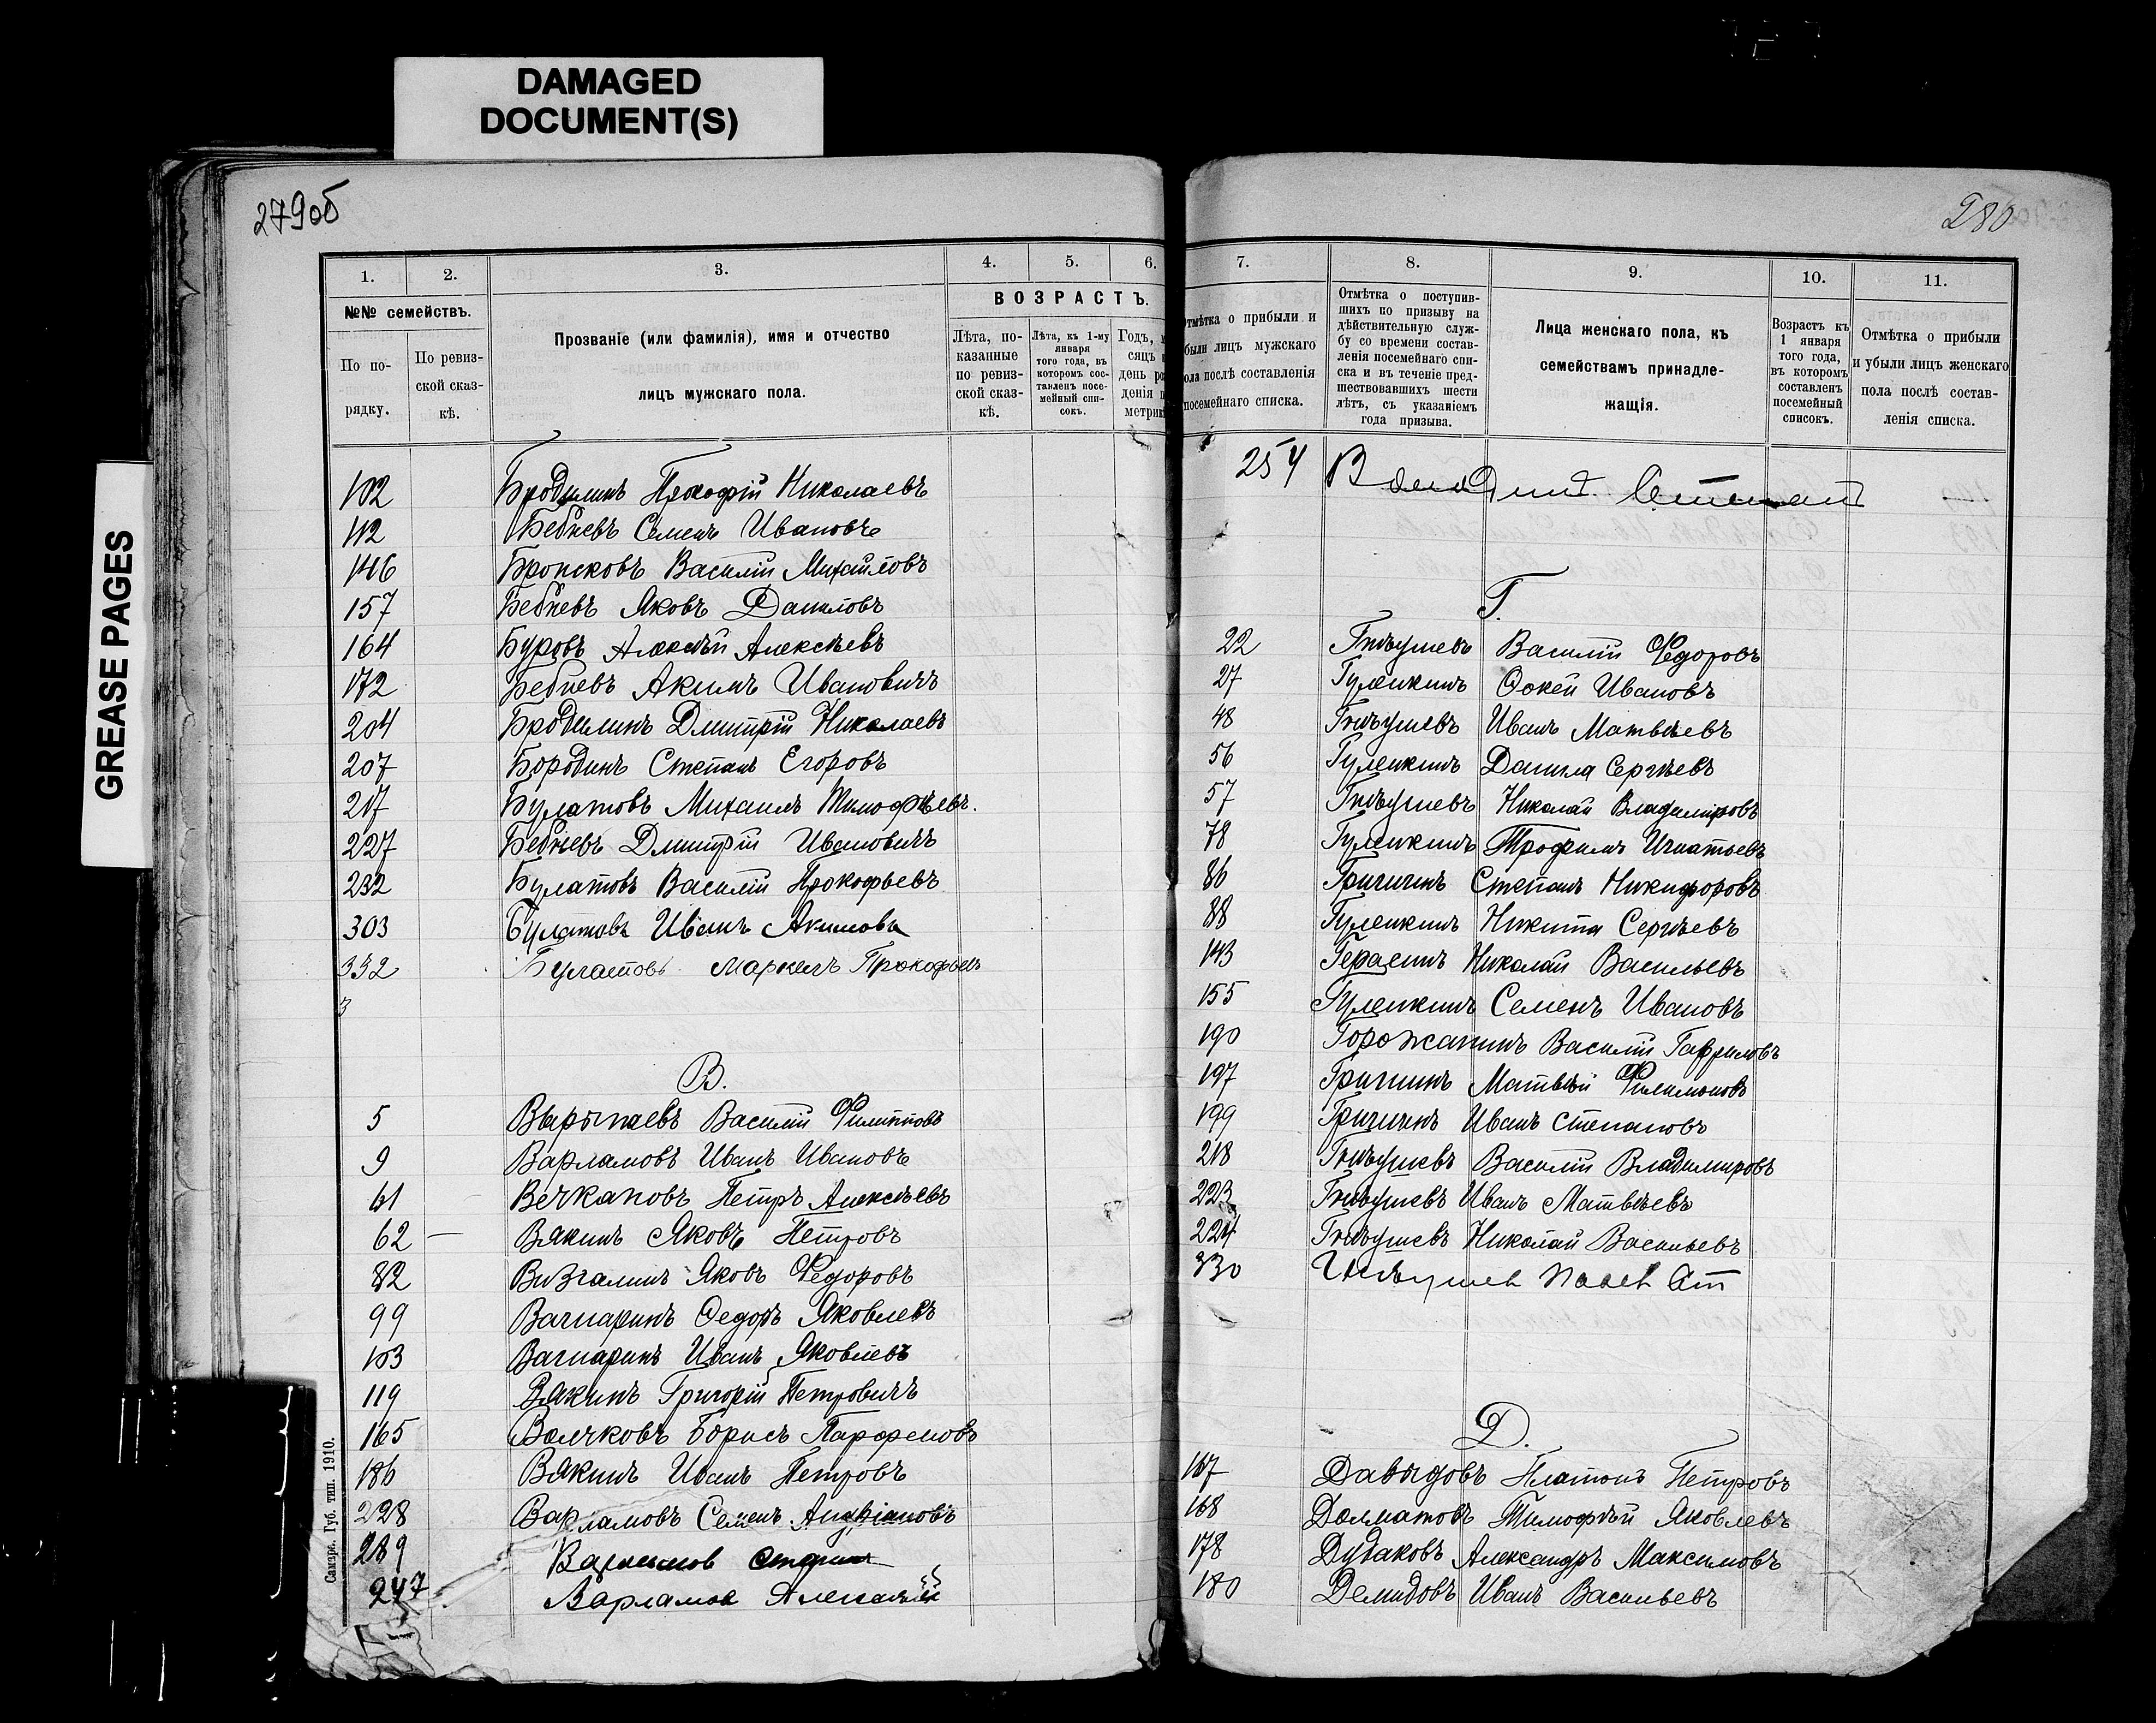 DAMAGED
DOCUMENT(S)
GREASE PAGES
279об
1. 2. 3. 4. 5. 6.
№№ семействъ.
По по-
рядку.
По ревиз-
ской сказ-
кѣ.
Прозваніе (или фамилія), имя и отчество
лицъ мужскаго пола.
ВОЗРАСТЪ.
Лѣта, по-
казанные
по ревиз-
ской сказ-
кѣ.
Лѣта, къ 1-му
января
того года, въ
которомъ сос-
тавленъ посе-
мейный спи-
сокъ.
Годъ,
сяцъ
день
денія
метрик
102 Бродилинъ Прокофій Николаевъ
112 Бебневъ Семенъ Ивановъ
146 Бронсковъ Василій Михайловъ
157 Бебневъ Яковъ Даниловъ
164 Буровъ Алексѣй Алексѣевъ
172 Бебневъ Акимъ Ивановичъ
204 Бродилинъ Дмитрій Николаевъ
207 Бородинъ Степанъ Егоровъ
217 Булатовъ Михаилъ Тимофѣевъ.
227 Бебневъ Дмитрій Ивановичъ
232 Булатовъ Василій Прокофьевъ
303 Булатовъ Иванъ Акимовъ
332 Булатовъ Маркелъ Прокофьевъ
3
В.
5 Вырыпаевъ Василій Филипповъ
9 Варламовъ Иванъ Ивановъ
61 Вечкановъ Петръ Алексѣевъ
62 Вякинъ Яковъ Петровъ
82 Визгалинъ Яковъ Федоровъ
99 Вагнаринъ Ѳедоръ Яковлевъ
103 Вагнаринъ Иванъ Яковлевъ
119 Вякинъ Григорій Петровичъ
165 Волчковъ Борисъ Парфеновъ
186 Вякинъ Иванъ Петровъ
228 Варламовъ Семенъ Андріановъ
289 Варламов
247 Варламов Алексѣй
Самарс. Губ. тип. 1910.
280
7. 8. 9. 10. 11.
тмѣтка о прибыли и
были лицъ мужскаго
ола послѣ составленія
посемейнаго списка.
Отмѣтка о поступив-
шихъ по призыву на
дѣйствительную служ-
бу со времени состав-
ленія посемейнаго спи-
ска и въ теченіе пред-
шествовавшихъ шести
лѣтъ, съ указаніемъ
года призыва.
Лица женскаго пола, къ
семействамъ принадле-
жащія.
Возрастъ къ
1 января
того года,
въ которомъ
составленъ
посемейный
списокъ.
Отмѣтка о прибыли
и убыли лицъ женскаго
пола послѣ состав-
ленія списка.
254 Степанъ
Г.
22 Гнѣушевъ Василій Федоровъ
27 Гуленкинъ Ѳокей Ивановъ
48 Гнѣушевъ Иванъ Матвѣевъ
56 Гуленкинъ Данила Сергѣевъ
57 Гнѣушевъ Николай Владиміровъ
78 Гуленкинъ Трофимъ Игнатьевъ
86 Гричинъ Степанъ Никифоровъ
88 Гуленкинъ Никита Сергѣевъ
143 Герасинъ Николай Васильевъ
155 Гуленкинъ Семенъ Ивановъ
190 Горожанинъ Василій Гавриловъ
197 Гричинъ Матвѣй Филимоновъ
199 Гричинъ Иванъ Степановъ
218 Гнѣушевъ Василій Владимировъ
223 Гнѣушевъ Иванъ Матвѣевъ
224 Гнѣушевъ Николай Васильевъ
330 Гнѣушев Павел
Д.
167 Давыдовъ Платонъ Петровъ
168 Долматовъ Тимофѣй Яковлевъ
178 Дудаковъ Александръ Максимовъ
180 Демидовъ Иванъ Васильевъ